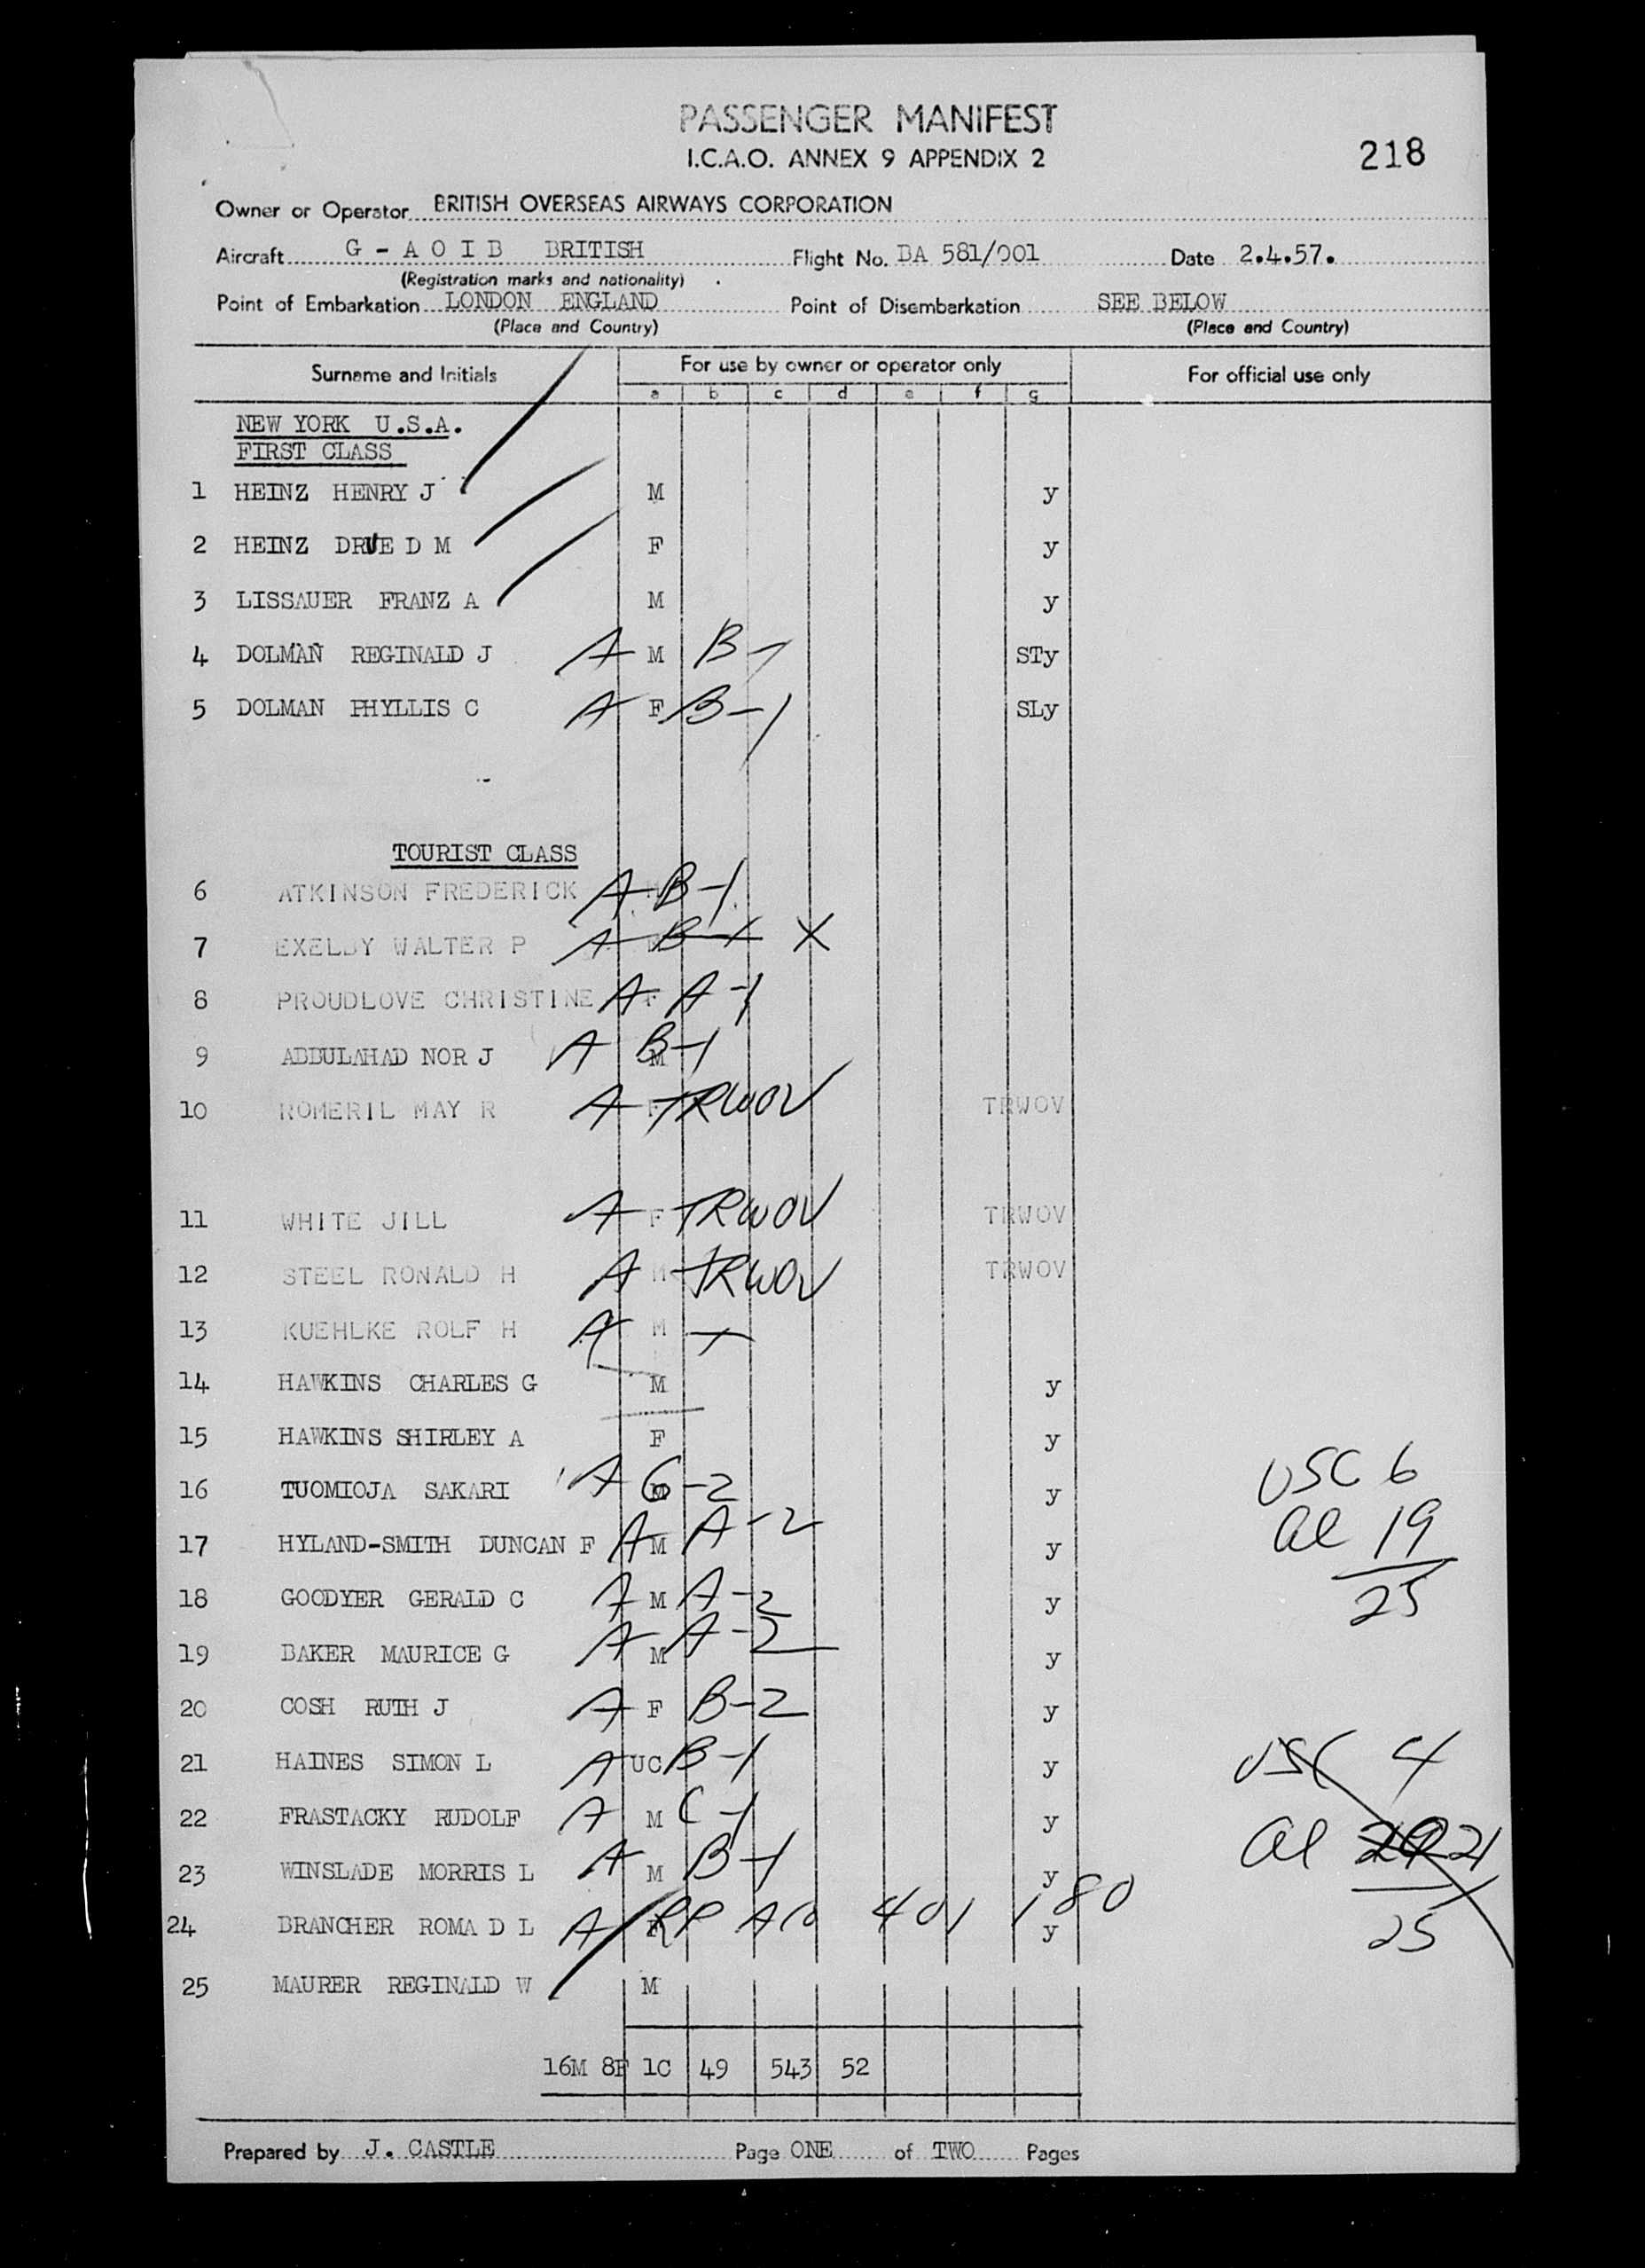 PASSENGER MANIFEST
I.C.A.O. ANNEX 9 APPENDIX 2
218
Owner or Operator BRITISH OVERSEAS AIRWAYS CORPORATION
Aircraft G - A O I B BRITISH Flight No. BA 581/001 Date 2.4.57.
(Registration marks and nationality)
Point of Embarkation LONDON ENGLAND Point of Disembarkation SEE BELOW
(Place and Country) (Place and Country)
Surname and Initials For use by owner or operator only For official use only
a b c d e f g
NEW YORK U.S.A.
FIRST CLASS
1 HEINZ HENRY J M y
2 HEINZ DRUE D M F y
3 LISSAUER FRANZ A M y
4 DOLMAN REGINALD J A M B-1 STy
5 DOLMAN PHYLLIS C A F B-1 SLy
TOURIST CLASS
6 ATKINSON FREDERICK A M B-1
7 EXELBY WALTER P A M B-1 X
8 PROUDLOVE CHRISTINE A F A-1
9 ABDULAHAD NOR J A M B-1
10 ROMERIL MAY R A F TRWOV TRWOV
11 WHITE JILL A F TRWOV TRWOV
12 STEEL RONALD H A M TRWOV TRWOV
13 KUEHLKE ROLF H A M
14 HAWKINS CHARLES G M y
15 HAWKINS SHIRLEY A F y
16 TUOMIOJA SAKARI A M G-2 y
USC 6
17 HYLAND-SMITH DUNCAN F A M A-2 y
al 19
18 GOODYER GERALD C A M A-2 y
25
19 BAKER MAURICE G A M A-2 y
20 COSH RUTH J A F B-2 y
21 HAINES SIMON L A UC B-1 y
USC 4
22 FRASTACKY RUDOLF A M C-1 y
al 21
23 WINSLADE MORRIS L A M B-1 y
24 BRANCHER ROMA D L A F RP A10 401 180 y
25
25 MAURER REGINALD W M
16M 8F 1C 49 543 52
Prepared by J. CASTLE Page ONE of TWO Pages